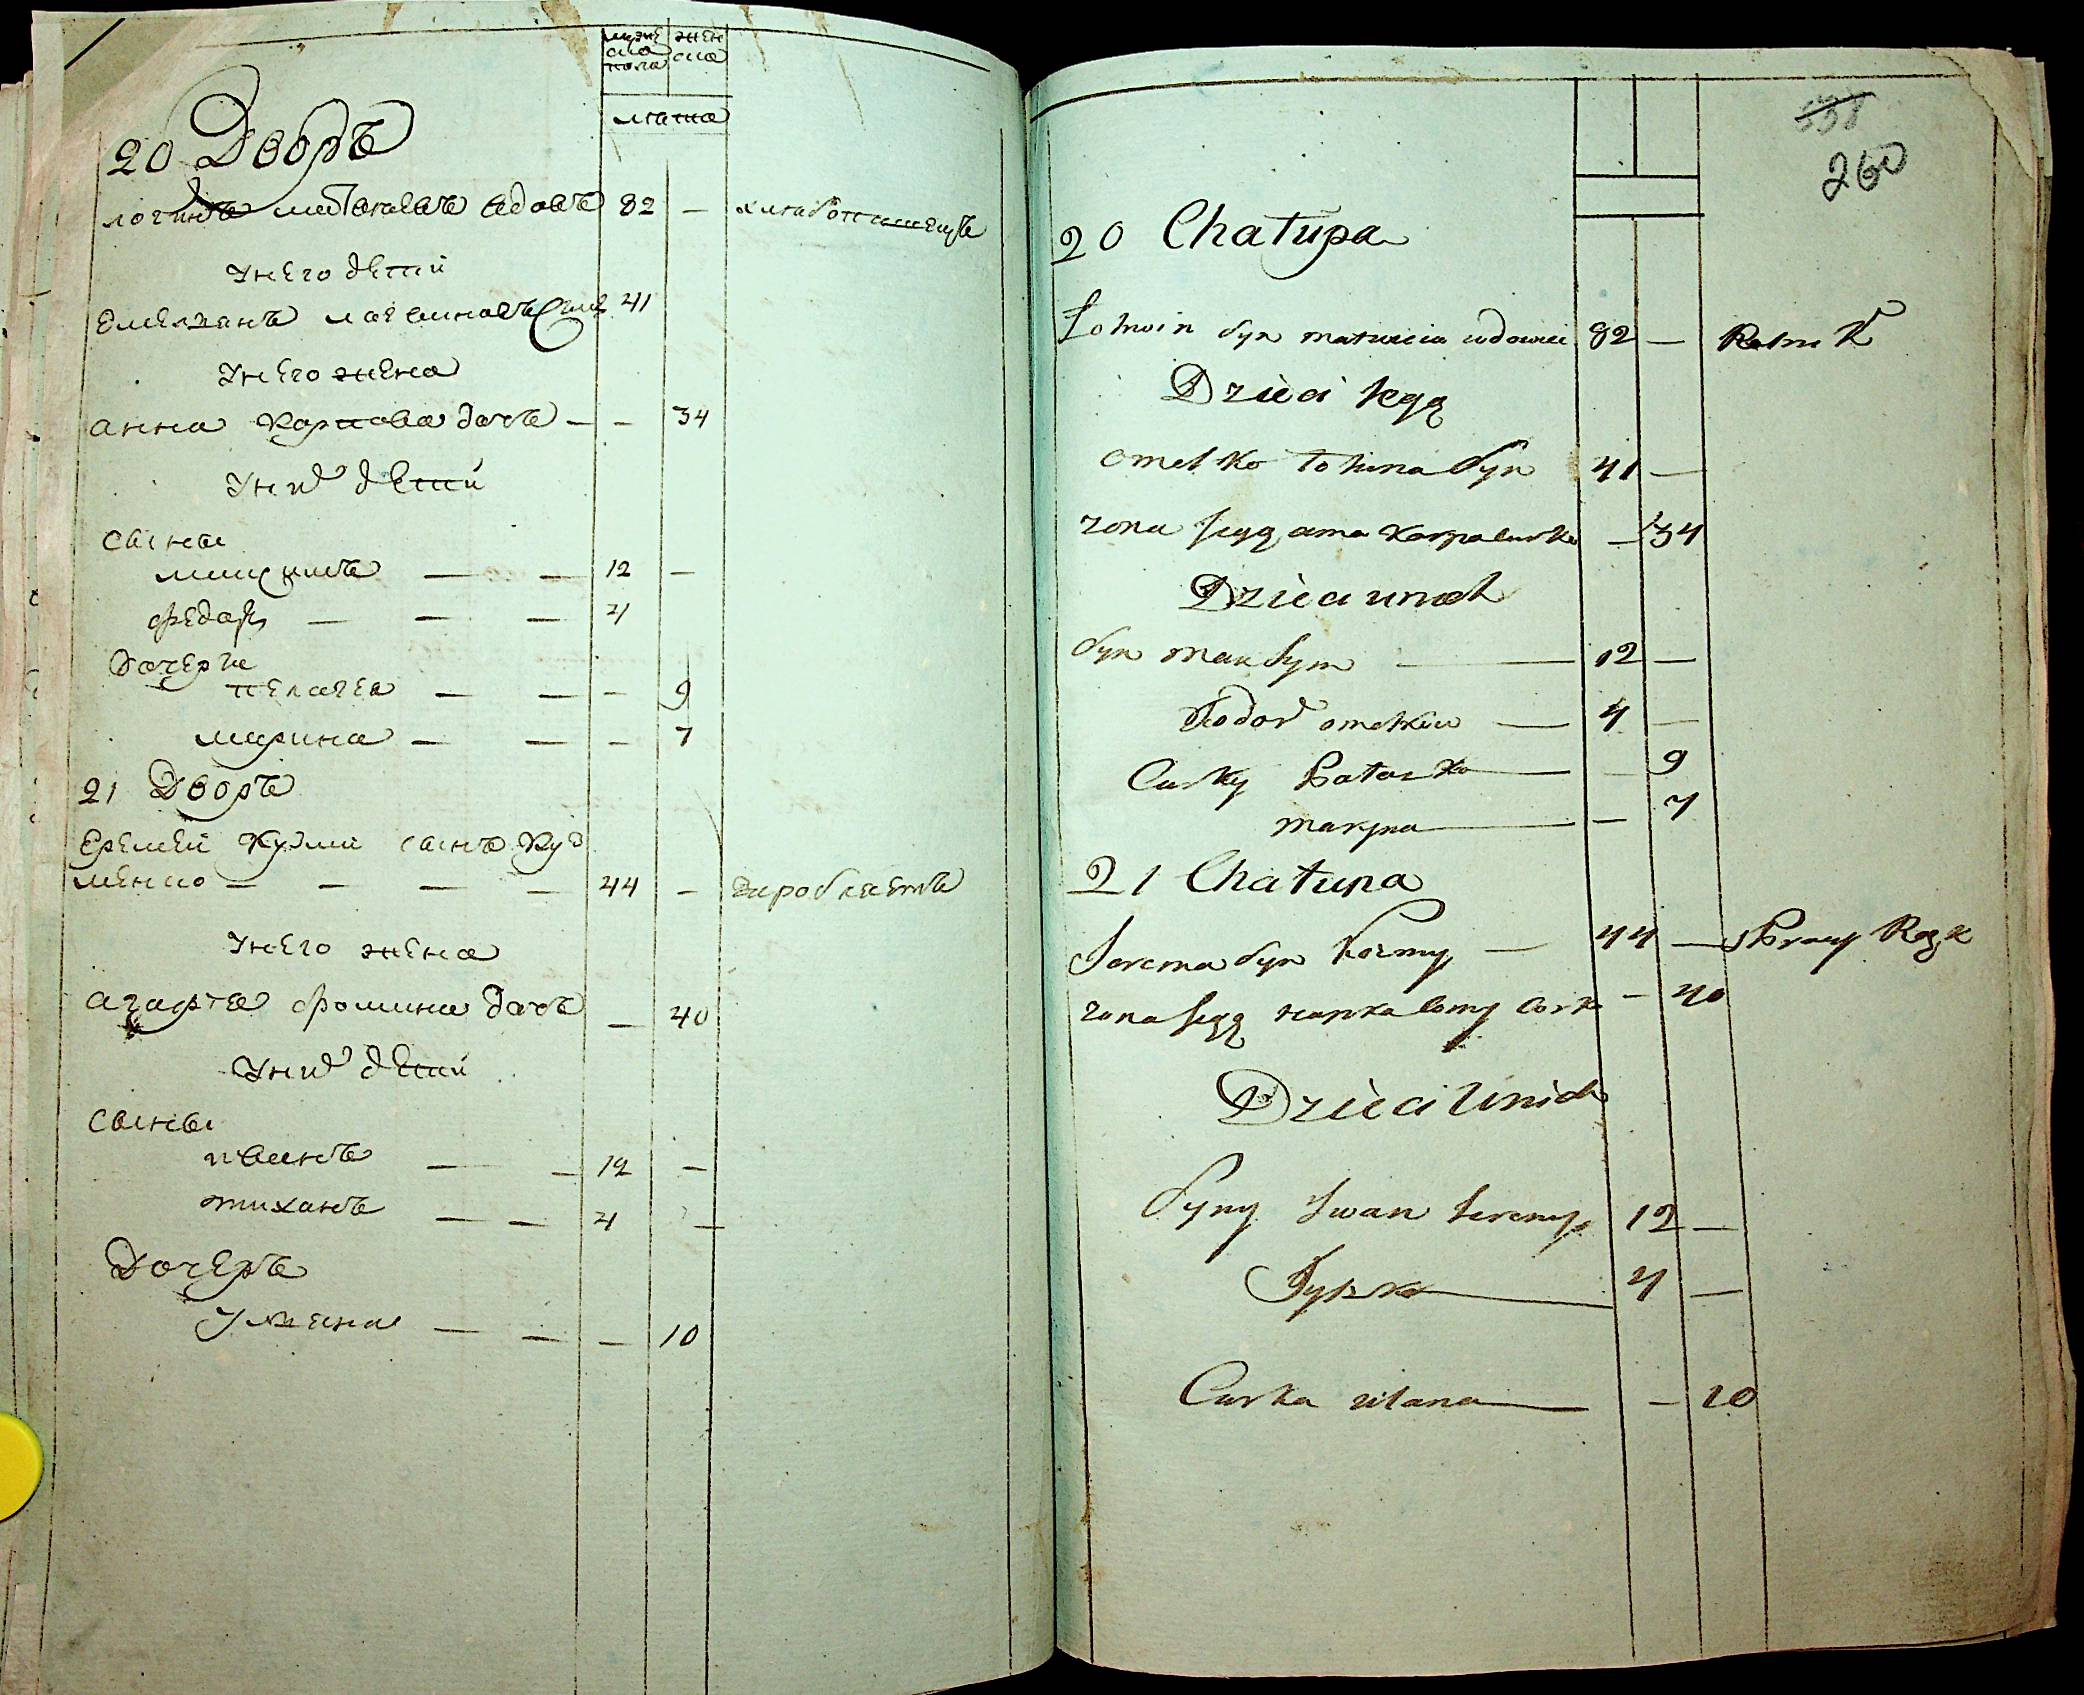 муже
ска
пола
жен
ска
лѣта
20 Дворъ
логинъ матвѣевъ вдовъ 82 — хлѣбопашецъ
Унего дети
Емелианъ логиновъ Синъ 41
Унего жена
анна карпова дочъ — — 34
Уних дети
Сыны
макзимъ — — 12 —
федоръ — — — 4
Дочерие
пелагея — — — 9
марина — — — 7
21 Дворъ
Еремей Кузми синъ Куз
менко — — — — 44 — заробляетъ
Унего жена
агафья фомина дочъ — 40
Уних дети
Сыны
иванъ — — 12 —
тихонъ — — 4 —
Дочеръ
Улиана — — — 10
558
260
20 Chałupa
Łohwin Syn matwieia wdowiec 82 — Rolnik
Dzieci Jego
omelko łohwina Syn 41 —
zona Jego anna Karpa curka — 34
Dzieci unich
Syn maksym — 12 —
Fiodor omelkiw — 4 —
Curky Pałaszka — — 9
maryna — — 7
21 Chałupa
Jarema Syn kozmy — 44 — z Pracy Rąk
zona Jego hapka tomy Corka — 40
Dzieci Unich
Syny Iwan Jeremy 12 —
Tyszko — 4 —
Curka ulana — — 10